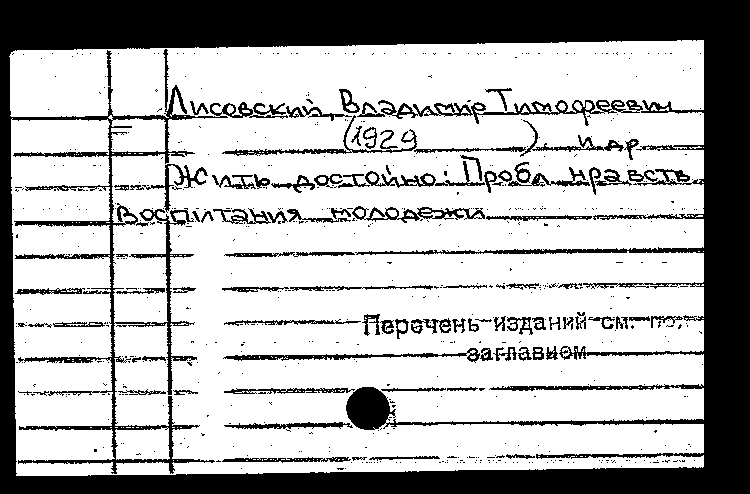 Лисовский, Владимир Тимофеевич
(1929 ) и др
Жить достойно: Пробл нравств
воспитания молодежи
Перечень изданий см. по.
заглавием